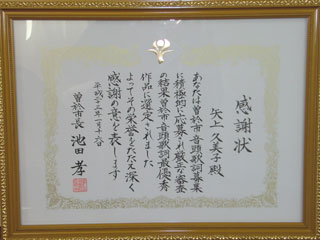 感謝状
矢上久美子殿
あなたは曽於市音頭歌詞募集
に積極的に応募され厳正な審査
の結果曽於市音頭歌詞最優秀
作品に選定されました
よってその栄誉をたたえ深く
感謝の意を表します
曽於市長 池田孝